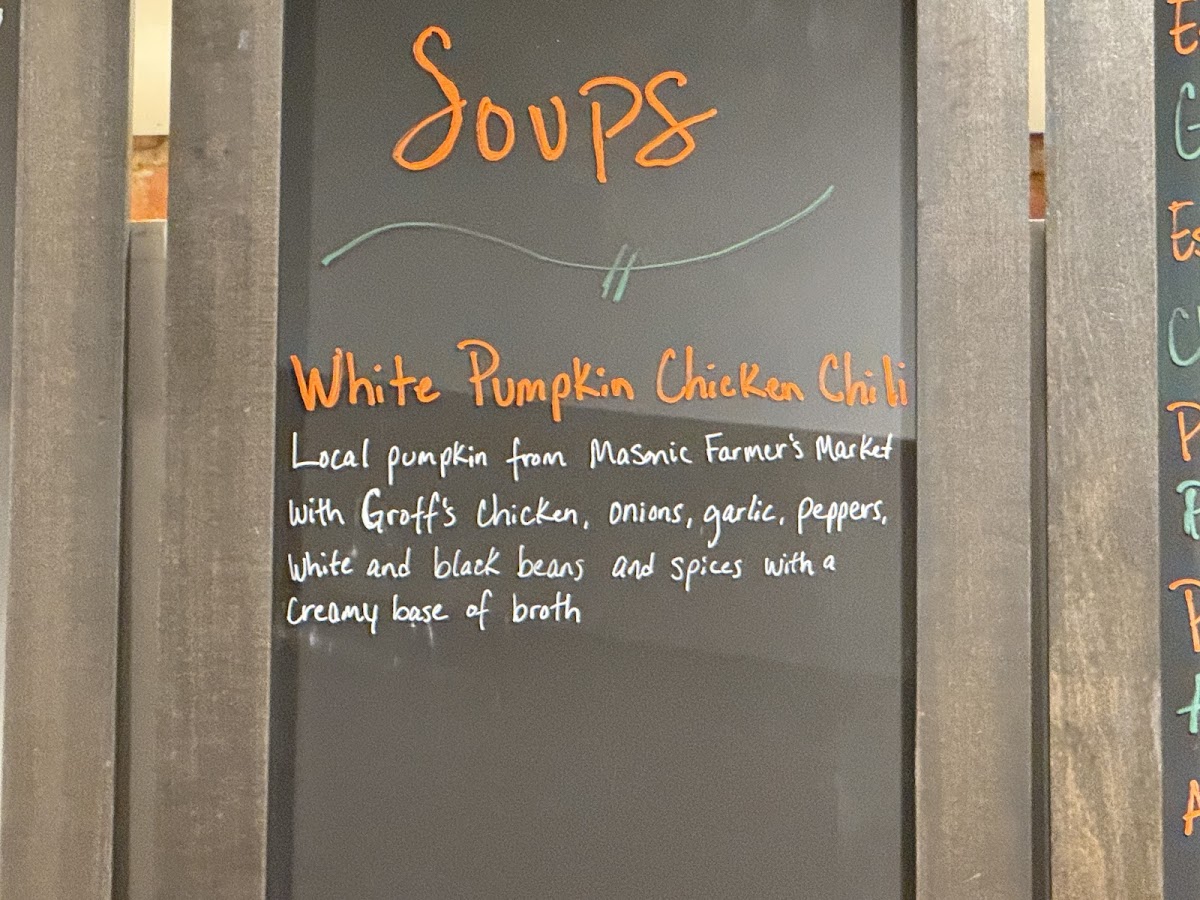 Soups
White Pumpkin Chicken Chili
Local pumpkin from Masonic Farmer's Market
with Groff's Chicken, onions, garlic, peppers,
white and black beans and spices with a
creamy base of broth